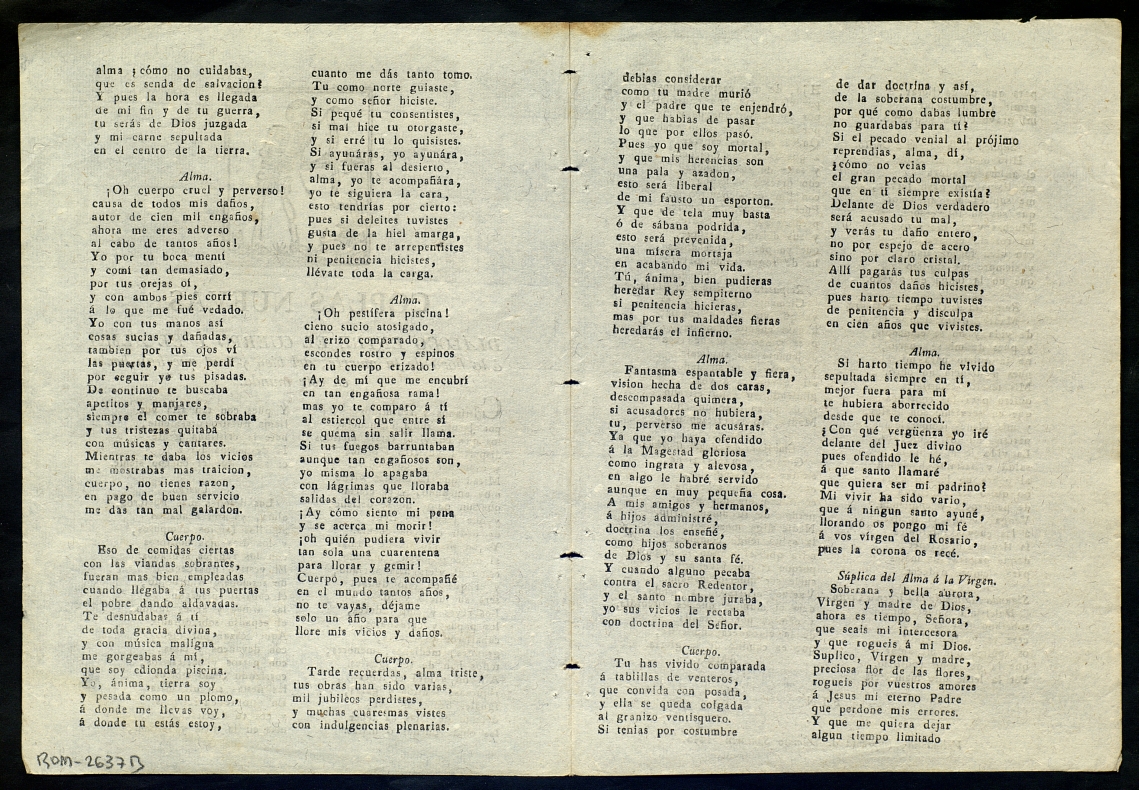 alma ¿cómo no cuidabas,
que es senda de salvacion?
Y pues la hora es llegada
de mi fin y de tu guerra,
tu serás de Dios juzgada
y mi carne sepultada
en el centro de la tierra.
Alma.
¡Oh cuerpo cruel y perverso!
causa de todos mis daños,
autor de cien mil engaños,
ahora me eres adverso
al cabo de tantos años!
Yo por tu boca mentí
y comí tan demasiado,
por tus orejas oí,
y con ambos pies corrí
á lo que me fué vedado.
Yo con tus manos así
cosas sucias y dañadas,
tambien por tus ojos ví
las puertas, y me perdí
por seguir yo tus pisadas.
De continuo te buscaba
apetitos y manjares,
siempre el comer te sobraba
y tus tristezas quitabá
con músicas y cantares.
Mientras te daba los vicios
me mostrabas mas traicion,
cuerpo, no tienes razon,
en pago de buen servicio
me das tan mal galardon.
Cuerpo.
Eso de comidas ciertas
con las viandas sobrantes,
fueran mas bien empleadas
cuando llegaba á tus puertas
el pobre dando aldavadas.
Te desnudabas á tí
de toda gracia divina,
y con música maligna
me gorgeabas á mí,
que soy edionda piscina.
Yo, ánima, tierra soy
y pesada como un plomo,
á donde me llevas voy,
á donde tu estás estoy,
cuanto me dás tanto tomo.
Tu como norte guiaste,
y como señor hiciste.
Si pequé tu consentistes,
si mal hice tu otorgaste,
y si erré tu lo quisistes.
Si ayunáras, yo ayunára,
y si fueras al desierto,
alma, yo te acompañára,
yo te siguiera la cara,
esto tendrías por cierto:
pues si deleites tuvistes
gusta de la hiel amarga,
y pues no te arrepentistes
ni penitencia hicistes,
llévate toda la carga.
Alma.
¡Oh pestífera piscina!
cieno sucio atosigado,
al erizo comparado,
escondes rostro y espinos
en tu cuerpo erizado!
¡Ay de mí que me encubrí
en tan engañosa rama!
mas yo te comparo á tí
al estiercol que entre sí
se quema sin salir llama.
Si tus fuegos barruntaban
aunque tan engañosos son,
yo misma lo apagaba
con lágrimas que lloraba
salidas del corazon.
¡Ay cómo siento mi pena
y se acerca mi morir!
¡oh quién pudiera vivir
tan sola una cuarentena
para llorar y gemir!
Cuerpo, pues te acompañé
en el mundo tantos años,
no te vayas, déjame
solo un áño para que
llore mis vicios y daños.
Cuerpo.
Tarde recuerdas, alma triste,
tus obras han sido varias,
mil jubileos perdistes,
y muchas cuaresmas vistes
con indulgencias plenarias.
debias considerar
como tu madre murió
y el padre que te enjendró,
y que habias de pasar
lo que por ellos pasó.
Pues yo que soy mortal,
y que mis herencias son
una pala y azadon,
esto será liberal
de mi fausto un esporton.
Y que de tela muy basta
ó de sábana podrida,
esto será prevenida,
una misera mortaja
en acabando mi vida.
Tú, ánima, bien pudieras
heredar Rey sempiterno
si penitencia hicieras,
mas por tus maldades fieras
heredarás el infierno.
Alma.
Fantasma espantable y fiera,
vision hecha de dos caras,
descompasada quimera,
si acusadores no hubiera,
tu, perverso me acusáras.
Ya que yo haya ofendido
á la Magestad gloriosa
como ingrata y alevosa,
en algo le habré servido
aunque en muy pequeña cosa.
A mis amigos y hermanos,
á hijos administré,
doctrina los enseñé,
como hijos soberanos
de Dios y su santa fé.
Y cuando alguno pecaba
contra el sacro Redentor,
y el santo nombre juraba,
yo sus vicios le rectaba
con doctrina del Señor.
Cuerpo.
Tu has vivido comparada
á tablillas de venteros,
que convida con posada,
y ella se queda colgada
al granizo ventisquero.
Si tenias por costumbre
de dar doctrina y así,
de la soberana costumbre,
por qué como dabas lumbre
no guardabas para tí?
Si el pecado venial al prójimo
reprendias, alma, dí,
¿cómo no veias
el gran pecado mortal
que en tí siempre existía?
Delante de Dios verdadero
será acusado tu mal,
y verás tu daño entero,
no por espejo de acero
sino por claro cristal.
Allí pagarás tus culpas
de cuantos daños hicistes,
pues harto tiempo tuvistes
de penitencia y disculpa
en cien años que vivistes.
Alma.
Si harto tiempo he vivido
sepultada siempre en tí,
mejor fuera para mí
te hubiera aborrecido
desde que te conocí.
¿Con qué vergüenza yo iré
delante del Juez divino
pues ofendido le hé,
á que santo llamaré
que quiera ser mi padrino?
Mi vivir ha sido vario,
que á ningun santo ayuné,
llorando os pongo mi fé
á vos vírgen del Rosario,
pues la corona os recé.
Súplica del Alma á la Virgen.
Soberana y bella aurora,
Vírgen y madre de Dios,
ahora es tiempo, Señora,
que seais mi intercesora
y que rogueis á mi Dios.
Suplico, Vírgen y madre,
preciosa flor de las flores,
rogueis por vuestros amores
á Jesus mi eterno Padre
que perdone mis errores.
Y que me quiera dejar
algun tiempo limitado
BOM-2637B